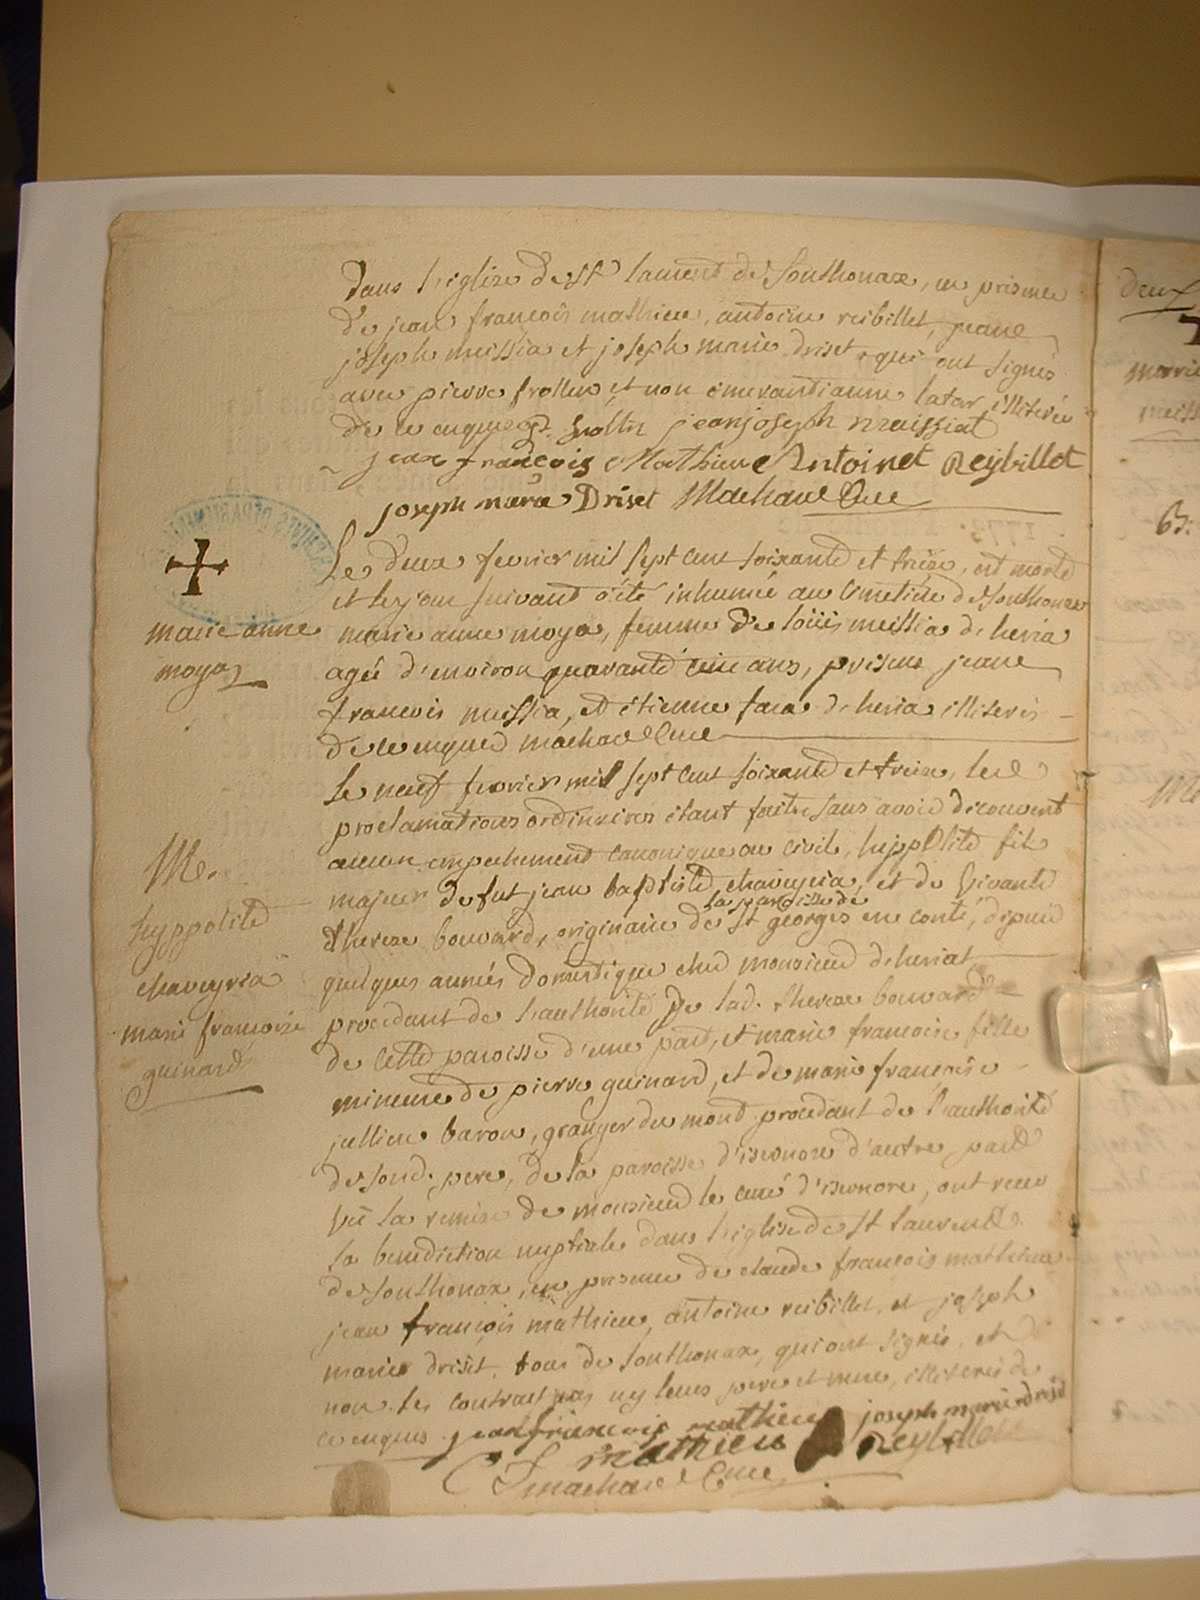 Dans l'eglize de st laurent de Sonthonax, en presence
de jean françois mathieu, antoine reibillet, jeane
joseph meissia et joseph marie driset, qui ont signés
avec pierre frollin, et non emerantianne latar illiterée
de ce enquise P. frollin jeanjoseph maissiat
jean françois Mathieu Antoinet Reybillet
joseph marie Driset Machard Curé
Le deux fevrier mil sept cent soixante et treize, est morte
et le jour suivant a été inhumée au Cimetiere de Sonthonax
marie anne moya, femme de loüis meissia de heria
marie anne
moya
agée d'environ quarante cinc ans, presens jeane
francois meissia, et etienne fara de heria illiterés
de ce enquis machard Curé
Le neuf fevrier mil sept cent soixante et treize, les
proclamations ordinaires etant faites sans avoir decouvert
aucun empechement canonique ou civil, hippolite fils
Me.
hyppolite
chaveyria
marie françoise
guinard
majeur de fut jean baptiste chaveyria, et de vivante
therese bouvard, originaire de la paroisse de st georges en conté, depuis
quelques années domestique ched monsieur de heriat
procedant de l'authorité de lad. therese bouvard
de cette paroisse d'une part, et marie francoise fille
mineure de pierre guinard, et de marie françoise
jullien baron, granger du mont procedant de l'authorité
de sond. pere, de la paroisse d'isernore d'autre part
vû la remise de monsieur le curé d'isernore, ont receu
la benediction nuptiale dans l'eglise de st laurent
de Sonthonax, en presence de claude françois mathieu
jean françois mathieu, antoine reibillet, et joseph
marie driset, tous de sonthonax, qui ont signés, et
non les contractans ny leurs pere et mere, illiterés de
ce enquis jeanfriancois mathieu joseph marie driset
C F mathieu A Reybillet
machard Curé
deux